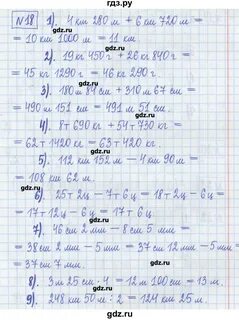 гдз.ру
№18 1). 4 км 280 м + 6 км 720 м =
= 10 км 1000 м = 11 км.
2). 19 кг 450 г + 26 кг 840 г =
= 45 кг 1290 г = 46 кг 290 г.
3). 180 м 84 см + 310 м 67 см =
= 490 м 151 см = 491 м 51 см.
4). 8 т 690 кг + 54 т 730 кг =
= 62 т 1420 кг = 63 т 420 кг.
5). 112 км 152 м - 4 км 90 м =
= 108 км 62 м.
6). 25 т 2 ц - 7 т 6 ц = 18 т 2 ц - 6 ц =
= 17 т 12 ц - 6 ц = 17 т 6 ц.
7). 46 см 2 мм - 8 см 5 мм =
= 38 см 2 мм - 5 мм = 37 см 12 мм - 5 мм =
= 37 см 7 мм.
8). 3 м 25 см · 4 = 12 м 100 см = 13 м.
9). 248 км 50 м : 2 = 124 км 25 м.